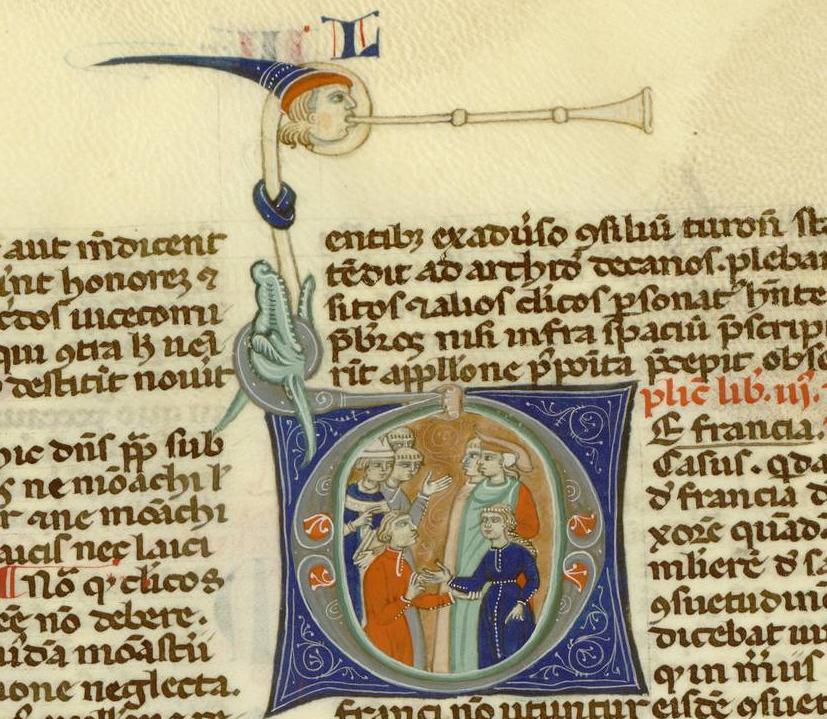 L
aut īndicent
int honorez ⁊
cdos uicecomi
qui ꝯtra h̄ uel
destitit nouit
hic dn̄s pp̄ sub
ne mōachi l'
ane mōachi
laici nec laici
Nō q' clicos
eē nō debere.
mōastii
ione neglecta.
entibꝫ exaduiso ꝯsiliū turon̄ sta
tēdit ad archid' decanos. pleban
sitos ⁊alios clicos psonat' hn̄te
p̄bros nisi infra spaciū p̄scrip
rīt appllone p̄poita p̄cepit obse
plic̄ lib. iij.
E francia.
Casus. qda
d' francia d
xorē quādā
mlierē d' sa
ꝯsuetudinē
dicebat
q' in
franci nō utuntur eisdē ꝯsuet